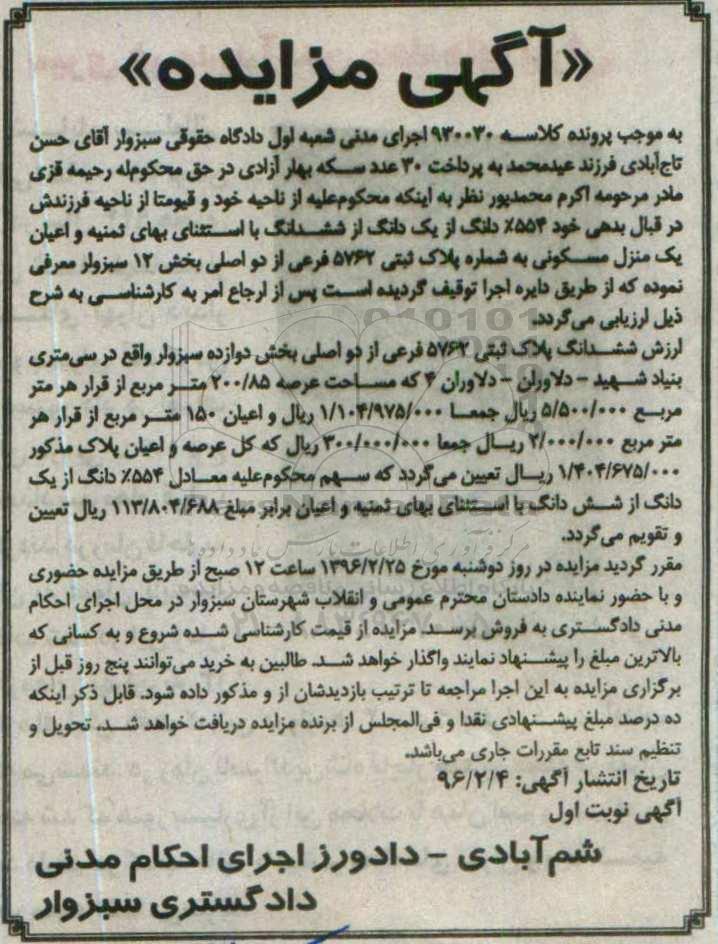 «آگهی مزایده»
به موجب پرونده کلاسه ۹۳۰۰۳۰ اجرای مدنی شعبه اول دادگاه حقوقی سبزوار آقای حسن
تاج‌آبادی فرزند عیدمحمد به پرداخت ۳۰ عدد سکه بهار آزادی در حق محکوم‌له رحیمه قزی
مادر مرحومه اکرم محمدپور نظر به اینکه محکوم‌علیه از ناحیه خود و قیومتا از ناحیه فرزندش
در قبال بدهی خود ۵۵۴٪ دانگ از یک دانگ از ششدانگ با استثنای بهای ثمنیه و اعیان
یک منزل مسکونی به شماره پلاک ثبتی ۵۷۶۲ فرعی از دو اصلی بخش ۱۲ سبزوار معرفی
نموده که از طریق دایره اجرا توقیف گردیده است پس از ارجاع امر به کارشناسی به شرح
ذیل ارزیابی می‌گردد.
لرزش ششدانگ پلاک ثبتی ۵۷۶۲ فرعی از دو اصلی بخش دوازده سبزوار واقع در سی‌متری
بنیاد شهید - دلاوران - دلاوران ۴ که مساحت عرصه ۲۰۰/۸۵ متر مربع از قرار هر متر
مربع ۵/۵۰۰/۰۰۰ ریال جمعا ۱/۱۰۴/۹۷۵/۰۰۰ ریال و اعیان ۱۵۰ متر مربع از قرار هر
متر مربع ۲/۰۰۰/۰۰۰ ریال جمعا ۳۰۰/۰۰۰/۰۰۰ ریال که کل عرصه و اعیان پلاک مذکور
۱/۴۰۴/۶۷۵/۰۰۰ ریال تعیین می‌گردد که سهم محکوم‌علیه معادل ۵۵۴٪ دانگ از یک
دانگ از شش دانگ با استثنای بهای ثمنیه و اعیان برابر مبلغ ۱۱۳/۸۰۴/۶۸۸ ریال تعیین
و تقویم می‌گردد.
مقرر گردید مزایده در روز دوشنبه مورخ ۱۳۹۶/۲/۲۵ ساعت ۱۲ صبح از طریق مزایده حضوری
و با حضور نماینده دادستان محترم عمومی و انقلاب شهرستان سبزوار در محل اجرای احکام
مدنی دادگستری به فروش برسد. مزایده از قیمت کارشناسی شده شروع و به کسانی که
بالاترین مبلغ را پیشنهاد نمایند واگذار خواهد شد. طالبین به خرید می‌توانند پنج روز قبل از
برگزاری مزایده به این اجرا مراجعه تا ترتیب بازدیدشان از و مذکور داده شود. قابل ذکر اینکه
ده درصد مبلغ پیشنهادی نقدا و فی‌المجلس از برنده مزایده دریافت خواهد شد. تحویل و
تنظیم سند تابع مقررات جاری می‌باشد.
تاریخ انتشار آگهی: ۹۶/۲/۴
آگهی نوبت اول
شم‌آبادی - دادورز اجرای احکام مدنی
دادگستری سبزوار